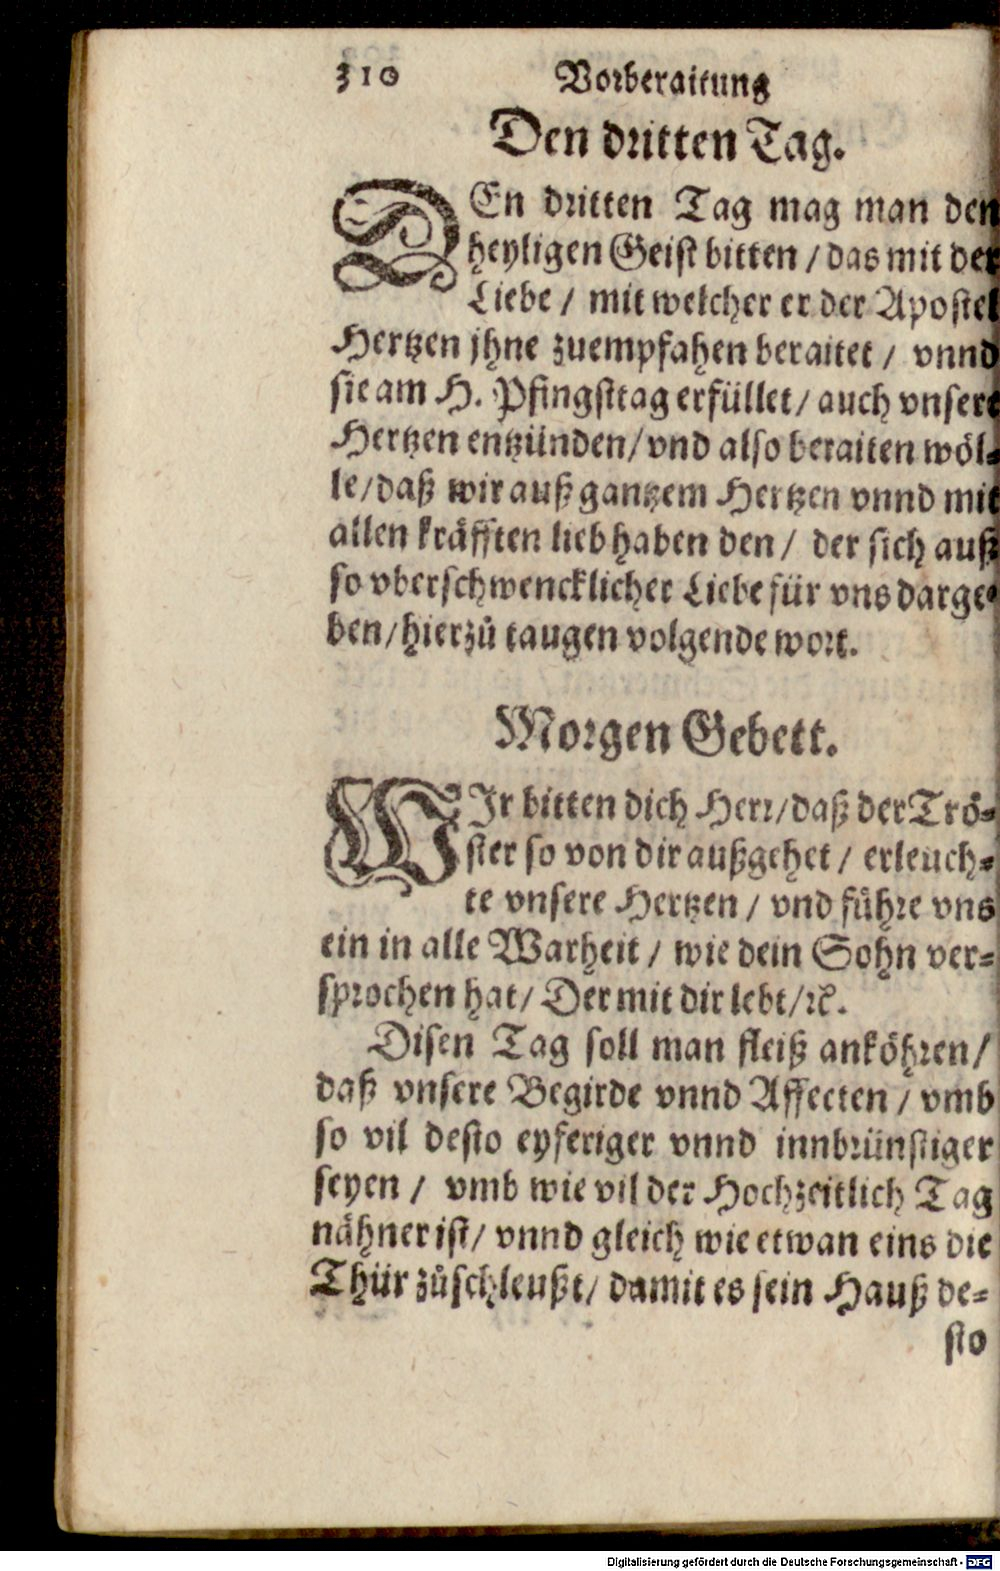 310 Vorberaitung
Den dritten Tag.
DEn dritten Tag mag man den
heyligen Geist bitten / das mit der
Liebe / mit welcher er der Apostel
Hertzen jhne zuempfahen beraitet / vnnd
sie am H. Pfingsttag erfüllet / auch vnsere
Hertzen entzünden / vnd also beraiten wöl-
le / daß wir auß gantzem Hertzen vnnd mit
allen kräfften lieb haben den / der sich auß
so vberschwencklicher Liebe für vns darge-
ben / hierzů taugen volgende wort.
Morgen Gebett.
WIr bitten dich Herr / daß der Trö-
ster so von dir außgehet / erleuch-
te vnsere Hertzen / vnd führe vns
ein in alle Warheit / wie dein Sohn ver-
sprochen hat / Der mit dir lebt / ꝛc.
Disen Tag soll man fleiß anköhren /
daß vnsere Begirde vnnd Affecten / vmb
so vil desto eyferiger vnnd innbrünstiger
seyen / vmb wie vil der Hochzeitlich Tag
nähner ist / vnnd gleich wie etwan eins die
Thür zůschleußt / damit es sein Hauß de-
sto
Digitalisierung gefördert durch die Deutsche Forschungsgemeinschaft - DFG